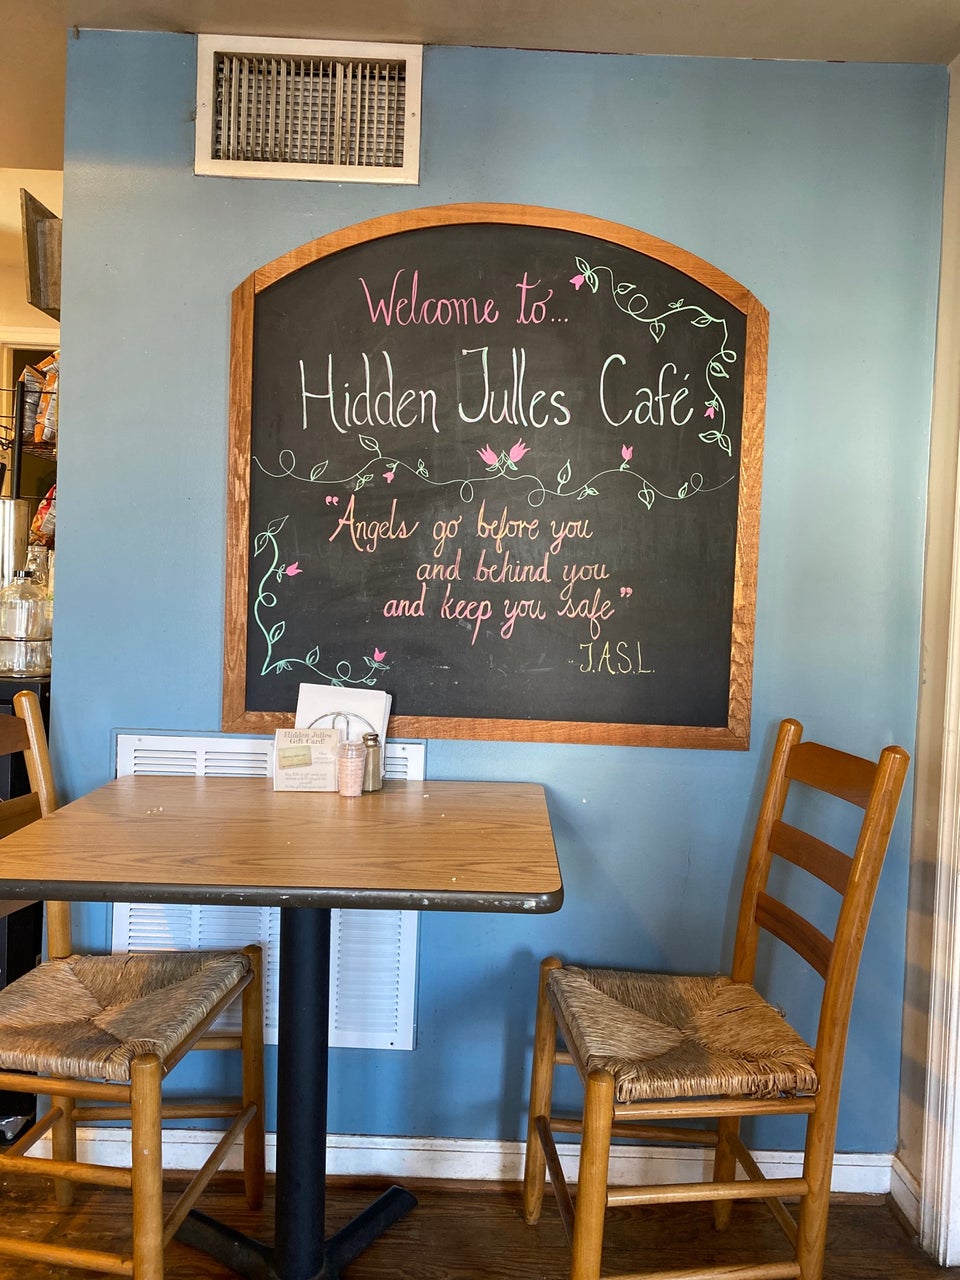 Welcome to...
Hidden Julles Café
“Angels go before you
and behind you
and keep you safe”
J.A.S.L.
Hidden Julles
Gift Card!